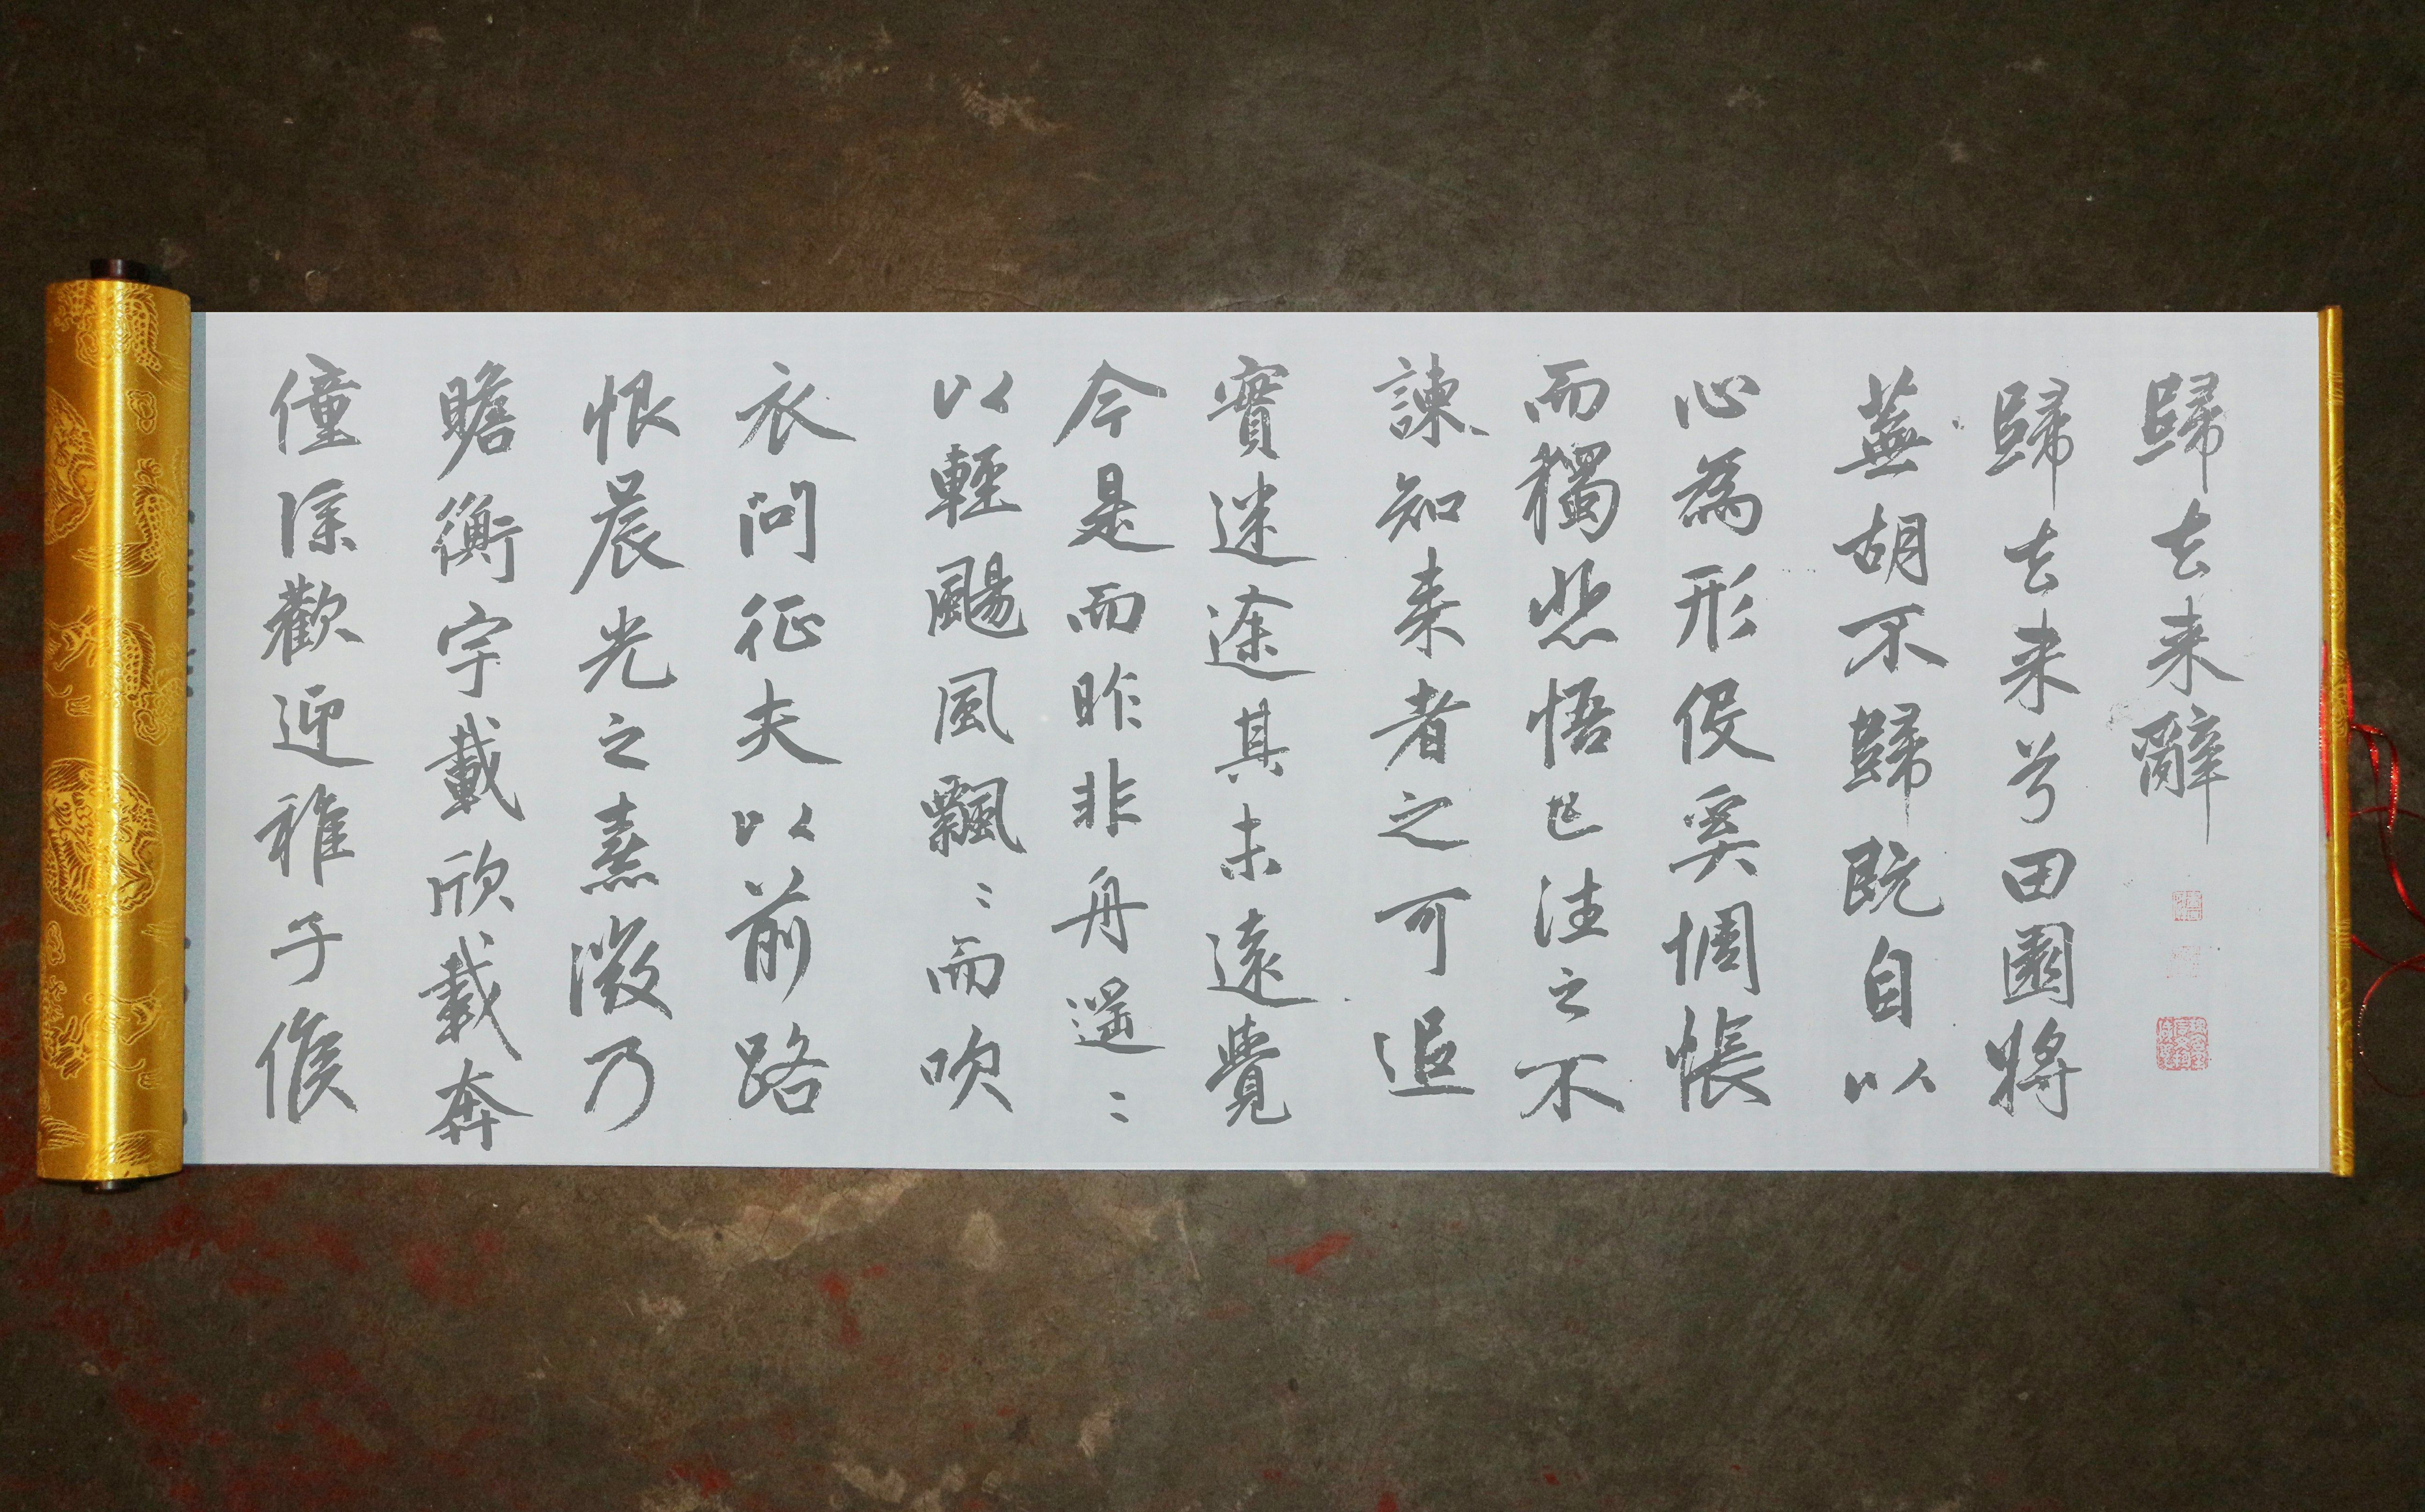 歸去来辭
歸去来兮田園將
蕪胡不歸既自以
心為形役奚惆悵
而獨悲悟已往之不
諫知来者之可追
實迷途其未遠覺
今是而昨非舟遥〻
以輕颺風飄〻而吹
衣问征夫以前路
恨晨光之熹微乃
瞻衡宇載欣載奔
僮僕歡迎稚子候